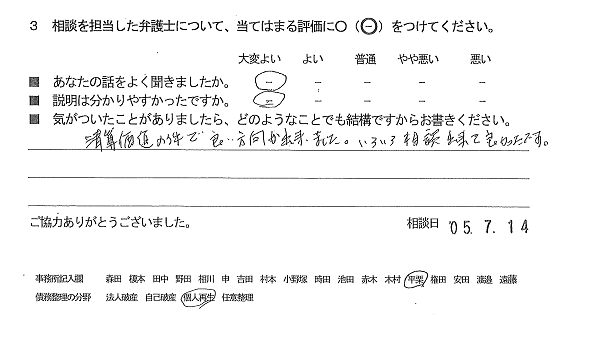 3 相談を担当した弁護士について、当てはまる評価に○（⊖）をつけてください。
大変よい よい 普通 やや悪い 悪い
■ あなたの話をよく聞きましたか。 − − − − −
■ 説明は分かりやすかったですか。 − − − − −
■ 気がついたことがありましたら、どのようなことでも結構ですからお書きください。
清算価値の件で良い方向が出来ました。いろいろ相談出来て良かったです。
ご協力ありがとうございました。 相談日 '05. 7. 14
事務所記入欄 森田 榎本 田中 野田 相川 申 吉田 村本 小野塚 時田 池田 赤木 木村 平栗 権田 安田 渡邉 遠藤
債務整理の分野 法人破産 自己破産 個人再生 任意整理